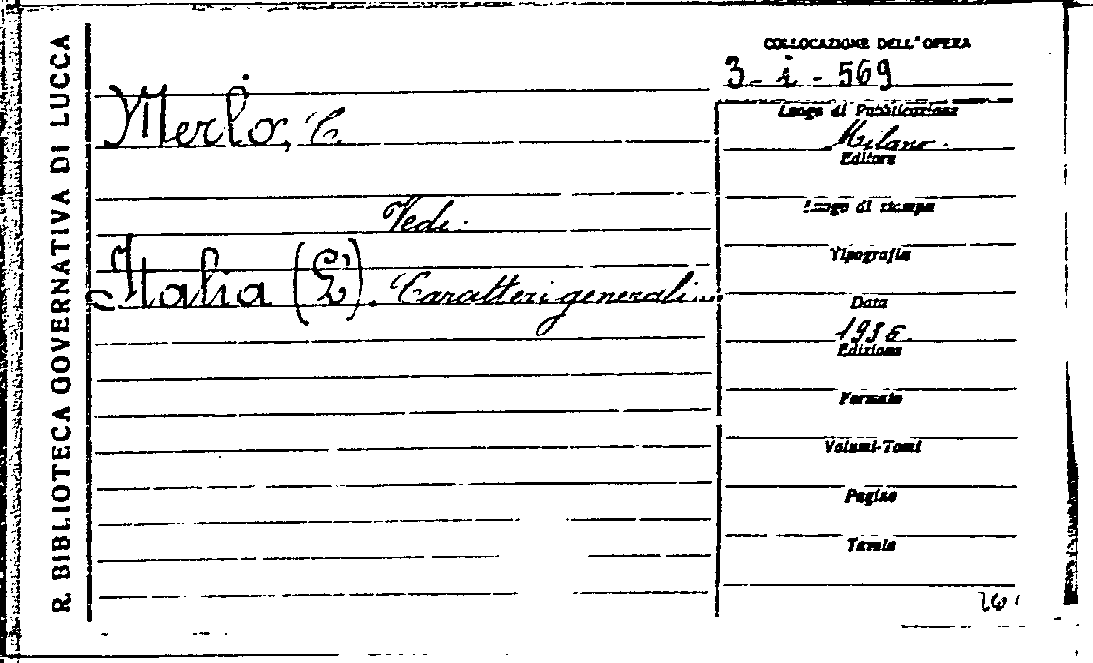 R. BIBLIOTECA GOVERNATIVA DI LUCCA
COLLOCAZIONE DELL'OPERA
3-i-569
Merlo, C.
Luogo di Pubblicazione
Milano.
Editore
Vedi.
Luogo di stampa
Italia (L'). Caratteri generali...
Tipografia
Data
1936.
Edizione
Formato
Volumi-Tomi
Pagine
Tavole